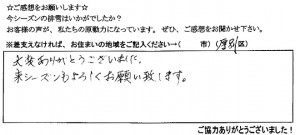 ☆ご感想をお願いします☆
今シーズンの排雪はいかがでしたか？
お客様の声が、私たちの原動力になっています。ぜひ、ご感想をお聞かせ下さい。
※差支えなければ、お住まいの地域をご記入ください→（　　　市）（厚別区）
大変ありがとうございました。
来シーズンもよろしくお願い致します。
ご協力ありがとうございました！